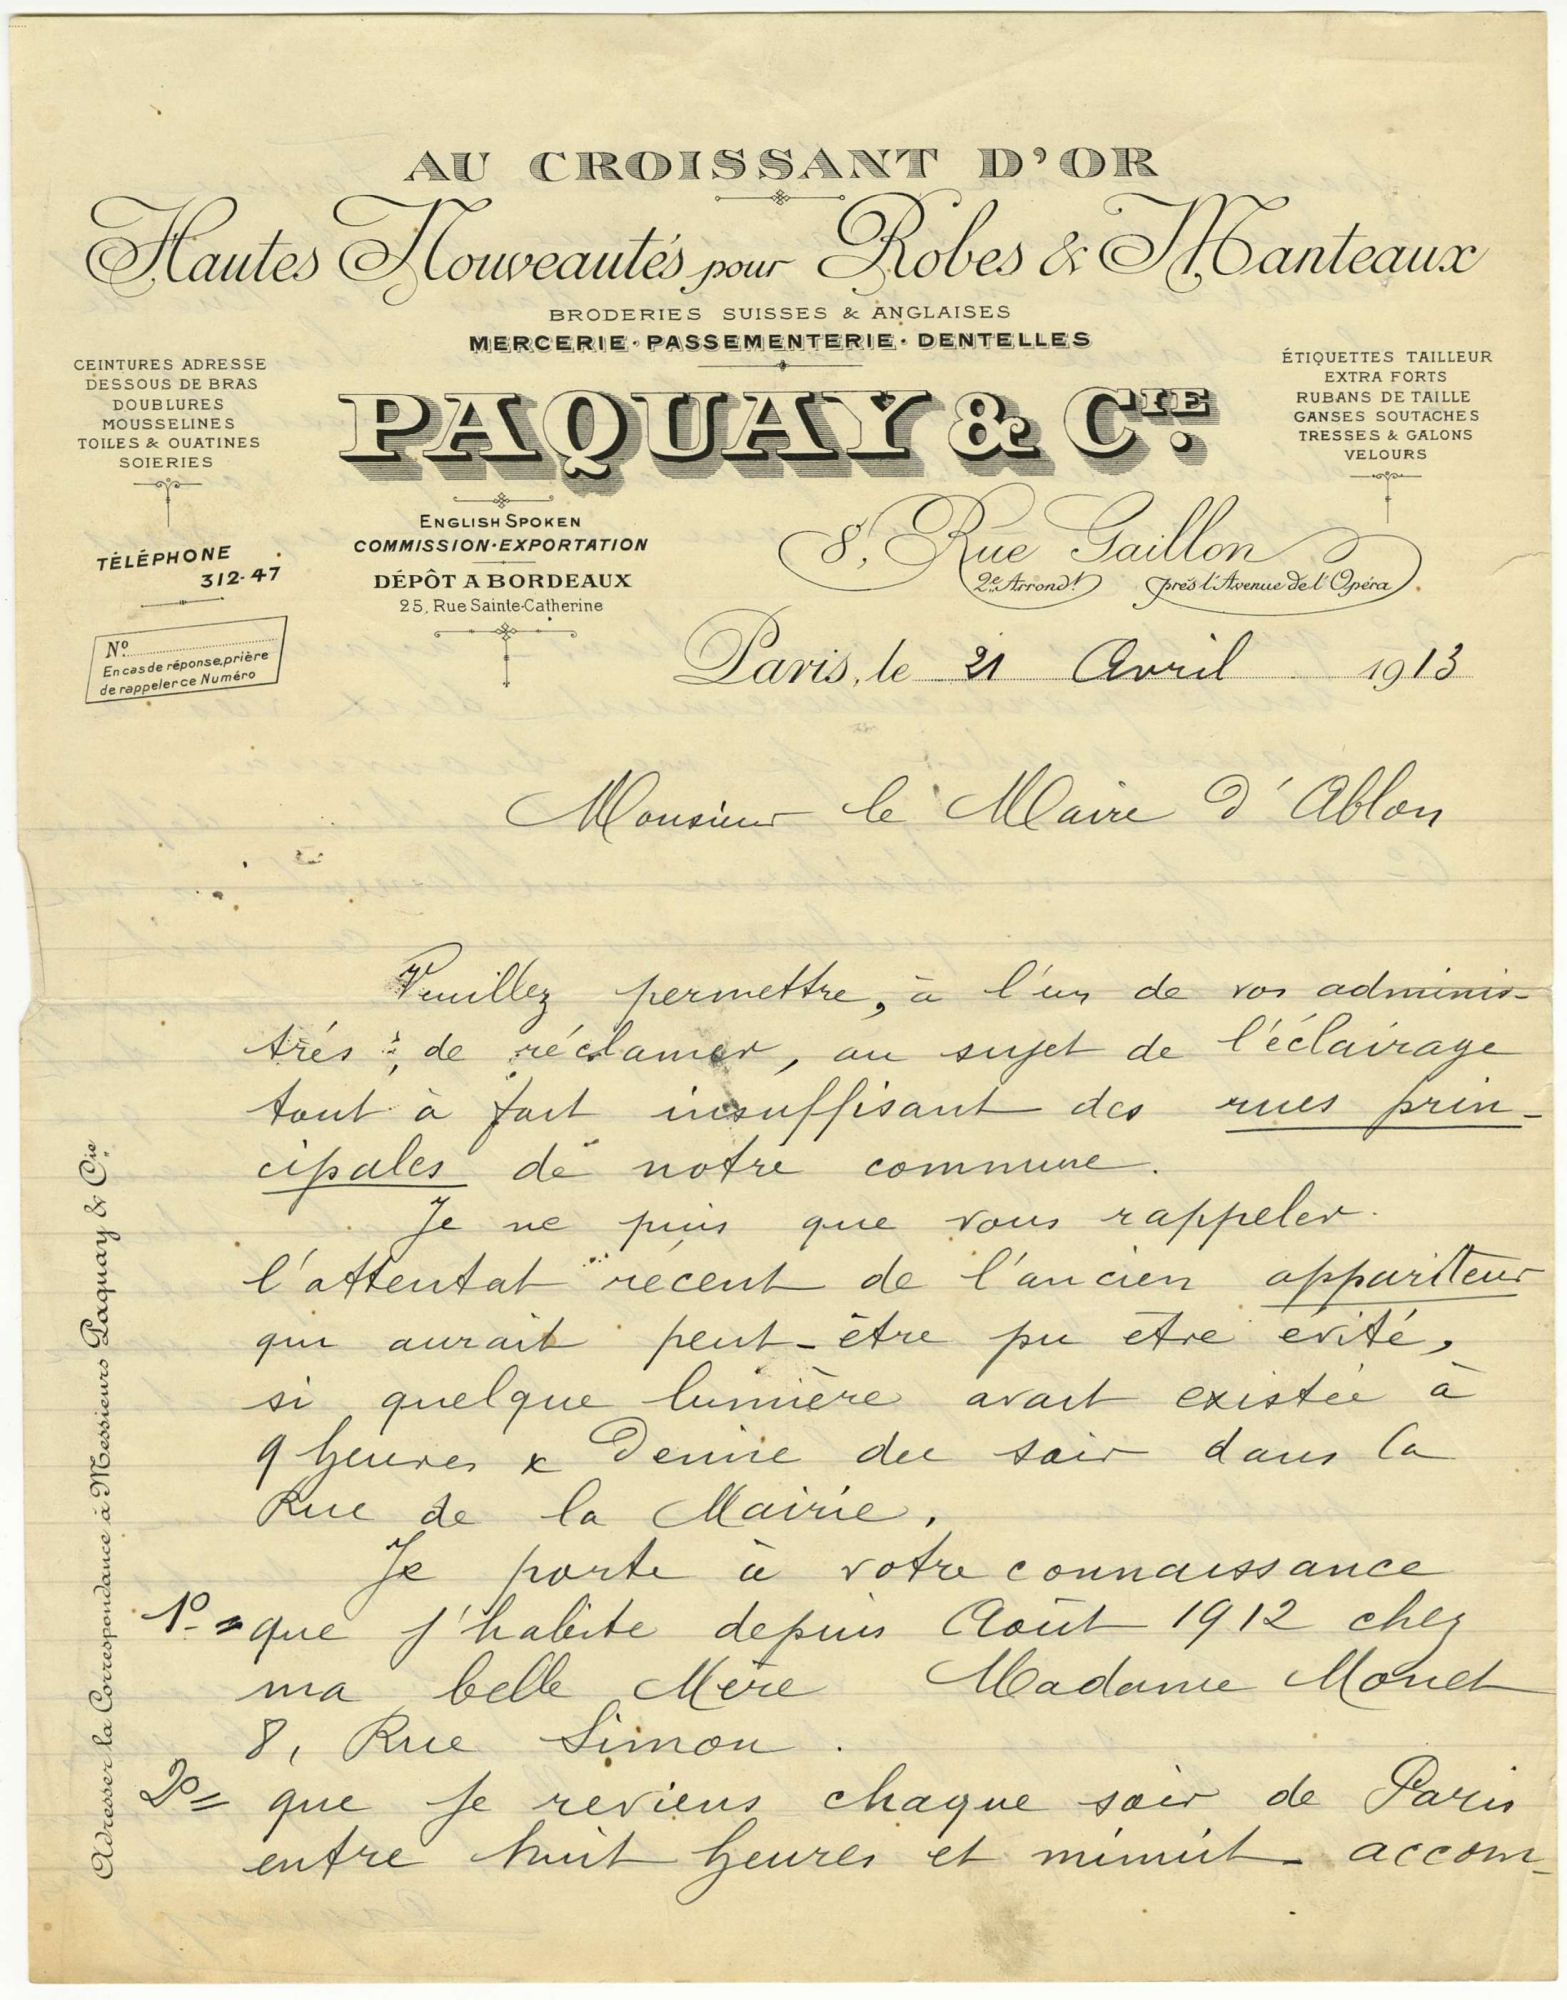 AU CROISSANT D'OR
Hautes Nouveautés pour Robes & Manteaux
BRODERIES SUISSES & ANGLAISES
MERCERIE · PASSEMENTERIE · DENTELLES
CEINTURES ADRESSE
DESSOUS DE BRAS
DOUBLURES
MOUSSELINES
TOILES & OUATINES
SOIERIES
ÉTIQUETTES TAILLEUR
EXTRA FORTS
RUBANS DE TAILLE
GANSES SOUTACHES
TRESSES & GALONS
VELOURS
PAQUAY & CIE.
TÉLÉPHONE
312-47
ENGLISH SPOKEN
COMMISSION · EXPORTATION
DÉPÔT A BORDEAUX
25, Rue Sainte-Catherine
8, Rue Gaillon
2e Arrondt. près l'Avenue de l'Opéra
No
En cas de réponse, prière
de rappeler ce Numéro
Paris, le 21 Avril 1913
Monsieur le Maire d'Ablon
Veuillez permettre, à l'un de vos adminis-
trés, de réclamer, au sujet de l'éclairage
tout à fait insuffisant des rues prin-
cipales de notre commune.
Je ne puis que vous rappeler
l'attentat récent de l'ancien appariteur
qui aurait peut-être pu être évité,
si quelque lumière avait existée à
9 heures & demie du soir dans la
Rue de la Mairie.
Je porte à votre connaissance
1o- que j'habite depuis Août 1912 chez
ma belle Mère Madame Monet
8, Rue Simon.
2o= que je reviens chaque soir de Paris
entre huit heures et minuit accom-
Adresser la Correspondance à Messieurs Paquay & Cie.